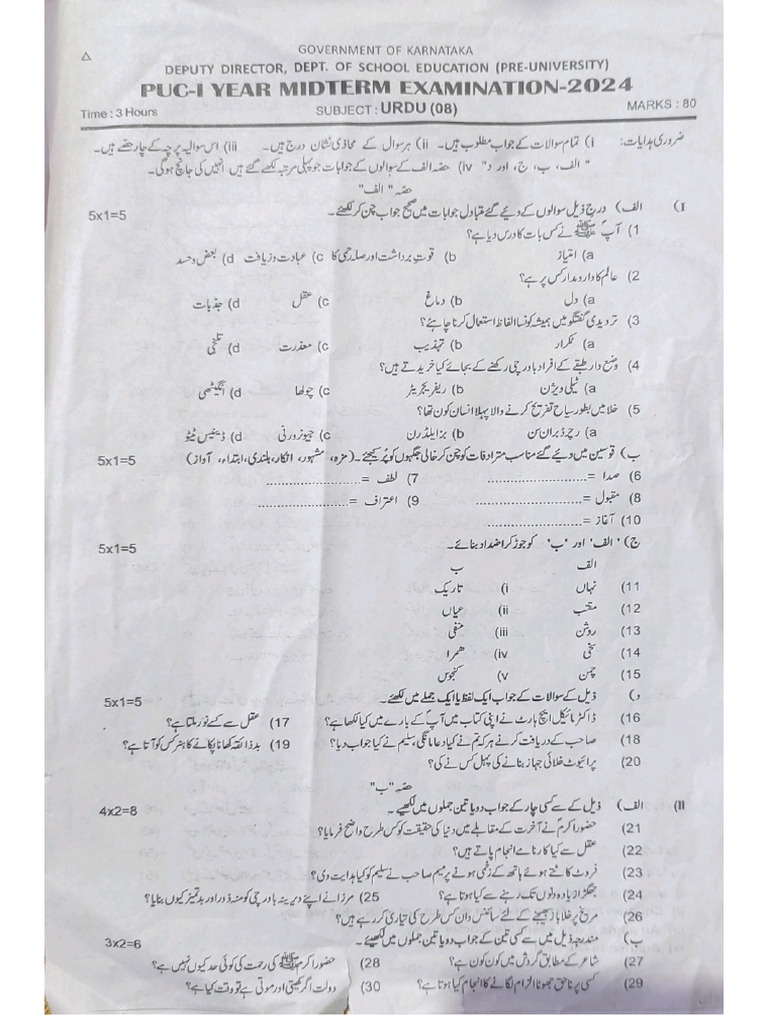 GOVERNMENT OF KARNATAKA
DEPUTY DIRECTOR, DEPT. OF SCHOOL EDUCATION (PRE-UNIVERSITY)
PUC-I YEAR MIDTERM EXAMINATION-2024
Time : 3 Hours SUBJECT : URDU (08) MARKS : 80
ضروری ہدایات: i) تمام سوالات کے جواب مطلوب ہیں۔ ii) ہر سوال کے محاذی نشان درج ہیں۔ iii) اس سوالیہ پرچہ کے چار حصّے ہیں۔
"الف، ب، ج، اور د" iv) حصّہ الف کے سوالوں کے جوابات جو پہلی مرتبہ لکھے گئے ہیں انہیں کی جانچ ہوگی۔
حصّہ "الف"
I) الف) درج ذیل سوالوں کے دیئے گئے متبادل جوابات میں صحیح جواب چن کر لکھئے۔ 5x1=5
1) آپؐ ﷺ نے کس بات کا درس دیا ہے؟
a) امتیاز b) قوتِ برداشت اور صلہ رحمی کا c) عبادت و زیافت d) بعض و حسد
2) عالم کا دار و مدار کس پر ہے؟
a) دل b) دماغ c) عقل d) جذبات
3) تردیدی گفتگو میں ہمیشہ کونسا الفاظ استعمال کرنا چاہئے؟
a) تکرار b) تہذیب c) معذرت d) تلخی
4) وضع دار طبقے کے افراد باورچی رکھنے کے بجائے کیا خریدتے ہیں؟
a) ٹیلی ویژن b) ریفریجریٹر c) چولھا d) انگیٹھی
5) خلا میں بطور سیاح تفریح کرنے والا پہلا انسان کون تھا؟
a) رچرڈ بران سن b) بزایلڈرن c) جیوزورنی d) ڈینیس ٹیٹو
ب) قوسین میں دیئے گئے مناسب مترادفات کو چن کر خالی جگہوں کو پُر کیجئے۔ (مزہ، مشہور، انکار، بلندی، ابتداء، آواز) 5x1=5
6) صدا = ............................ 7) لطف = ............................
8) مقبول = ............................ 9) اعتراف = ............................
10) آغاز = ............................
ج) 'الف' اور 'ب' کو جوڑ کر اضداد بنائے۔ 5x1=5
الف ب
11) نہاں i) تاریک
12) مثبت ii) عیاں
13) روشن iii) منفی
14) سخی iv) صحرا
15) چمن v) کنجوس
د) ذیل کے سوالات کے جواب ایک لفظ یا ایک جملے میں لکھئے۔ 5x1=5
16) ڈاکٹر مائیکل ایچ ہارٹ نے اپنی کتاب میں آپؐ کے بارے میں کیا لکھا ہے؟ 17) عقل سے کسے نور ملتا ہے؟
18) صاحب کے دریافت کرنے پر کہ تم نے کیا دعا مانگی، سلیم نے کیا جواب دیا؟ 19) بد ذائقہ کھانا پکانے کا ہنر کس کو آتا ہے؟
20) پرائیوٹ خلائی جہاز بنانے کی پہل کس نے کی؟
حصّہ "ب"
II) الف) ذیل کے سے کسی چار کے جواب دو یا تین جملوں میں لکھیے۔ 4x2=8
21) حضور اکرمؐ نے آخرت کے مقابلے میں دنیا کی حقیقت کو کس طرح واضح فرمایا؟
22) عقل سے کیا کارنامے انجام پاتے ہیں؟
23) فروٹ کاٹتے ہوئے ہاتھ کے زخمی ہونے پر میم صاحب نے سلیم کو کیا ہدایت دی؟
24) جھگڑا زیادہ دنوں تک رہنے سے کیا ہوتا ہے؟ 25) مرزا نے اپنے دیرینہ باورچی کو منہ زور اور بد تمیز کیوں بنایا؟
26) مریخ پر خلا باز بھیجنے کے لئے سائنس دان کس طرح کی تیاری کر رہے ہیں؟
ب) مندرجہ ذیل میں سے کسی تین کے جواب دو یا تین جملوں میں لکھیئے۔ 3x2=6
27) شاعر کے مطابق گردش میں کون کون ہے؟ 28) حضور اکرم ﷺ کی رحمت کی کوئی حد کیوں نہیں ہے؟
29) کسی پر ناحق جھوٹا الزام لگانے کا انجام کیا ہوتا ہے؟ 30) دولت اگر کھیتی اور موتی ہے تو وقت کیا ہے؟